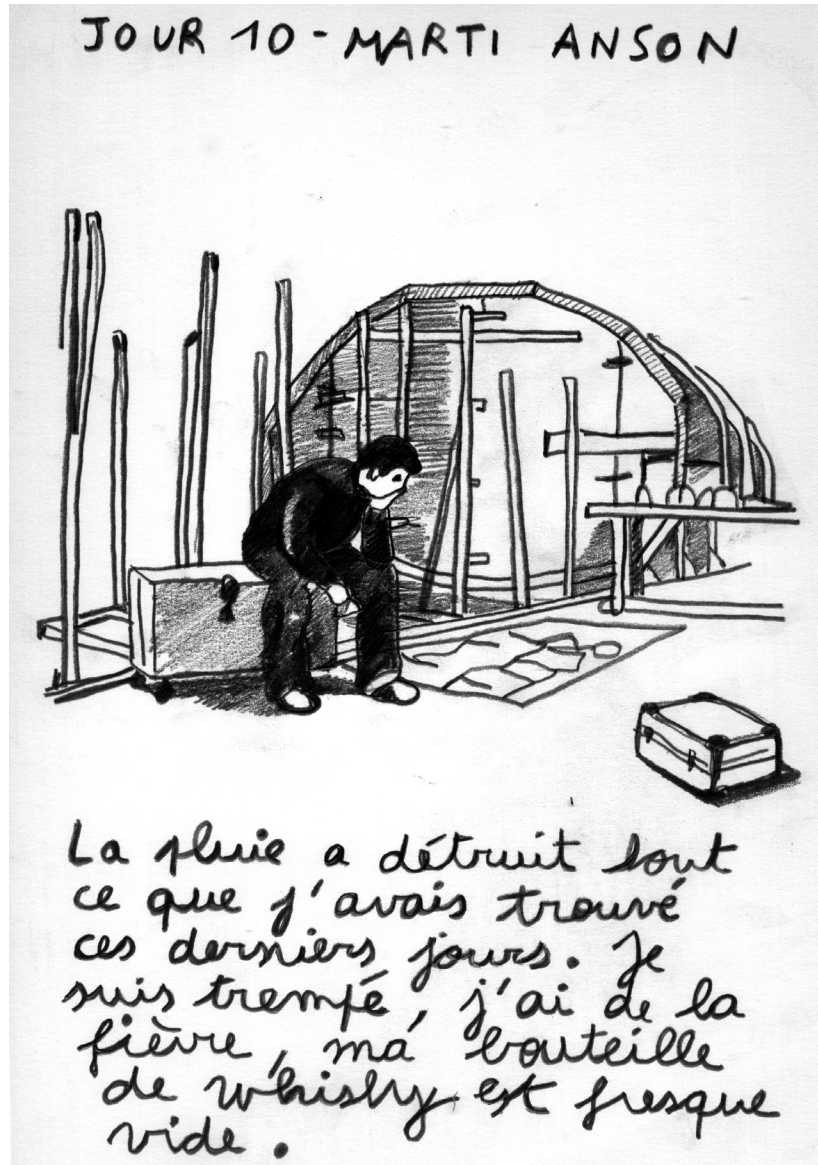 JOUR 10 - MARTI ANSON
La pluie a détruit tout
ce que j'avais trouvé
ces derniers jours. Je
suis trempé, j'ai de la
fièvre, ma bouteille
de whisky est presque
vide.